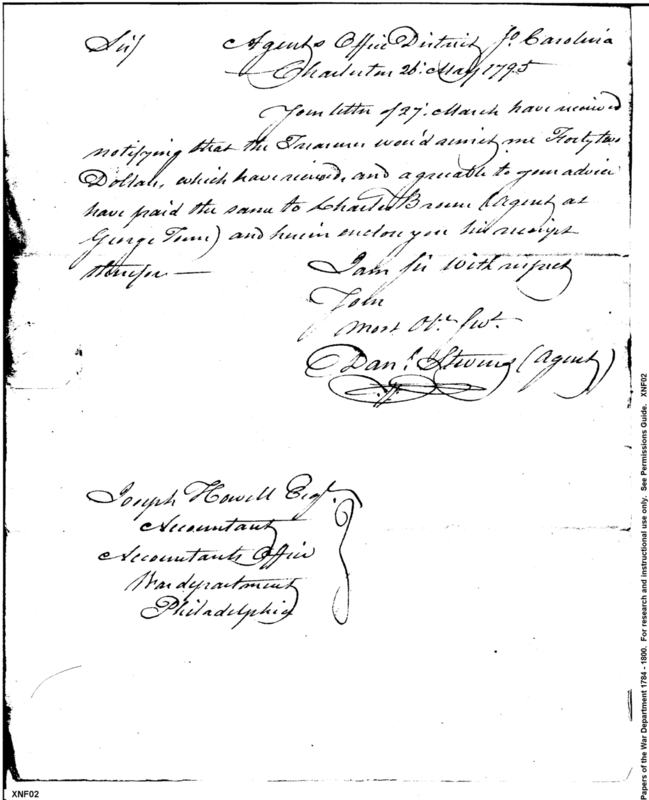 Sir
Agents Office District So. Carolina
Charleston 26: May 1795
Your letter of 27: March have received
notifying that the Treasurer wou'd remit me Forty two
Dollars, which have received, and agreable to your advice
have paid the same to Charles Brown (Agent at
George Town) and herein enclose you his receipt
therefor —
I am Sir With respect
Your
most Obt. Servt.
Danl. Stevens (Agent)
Joseph Howell Esqr.
Accountant
Accountants Office
War department
Philadelphia
XNF02
Papers of the War Department 1784 - 1800. For research and instructional use only. See Permissions Guide. XNF02